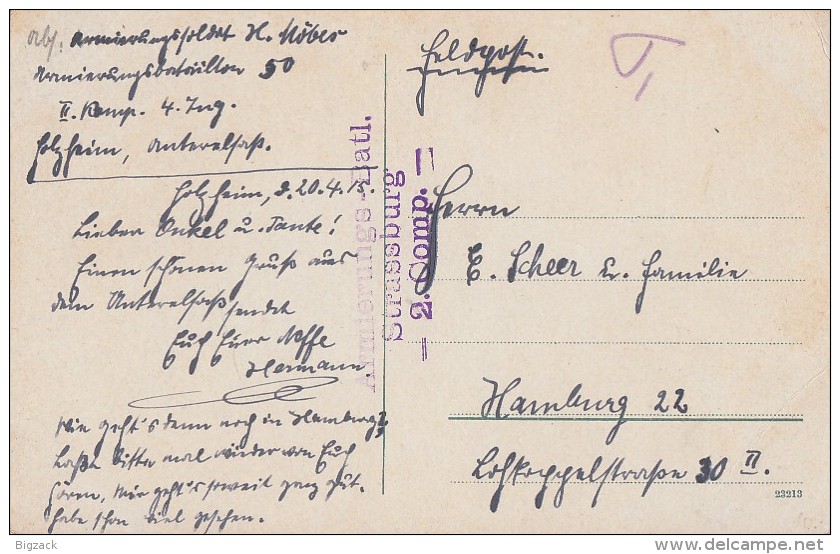 Abs. Armierungssoldat H. Möbes
Armierungsbataillon 50
II. Komp. 4. Zug.
Holzheim, Unterelsaß.
Holzheim, d. 20.4.15.
Lieber Onkel u. Tante!
Einen schönen Gruß aus
dem Unterelsaß sendet
Euch Euer Neffe
Hermann
Wie geht's denn noch in Hamburg?
Laßt bitte mal wieder von Euch
hören, Mir geht's soweit ganz gut.
habe schon viel gesehen.
Armierungs-Batl.
Strassburg
– 2. Comp. –
Feldpost.
Herrn
E. Scheer u. Familie
Hamburg 22
Lohkoppelstraße 30 II.
23213
Bigzack
delcampe.net